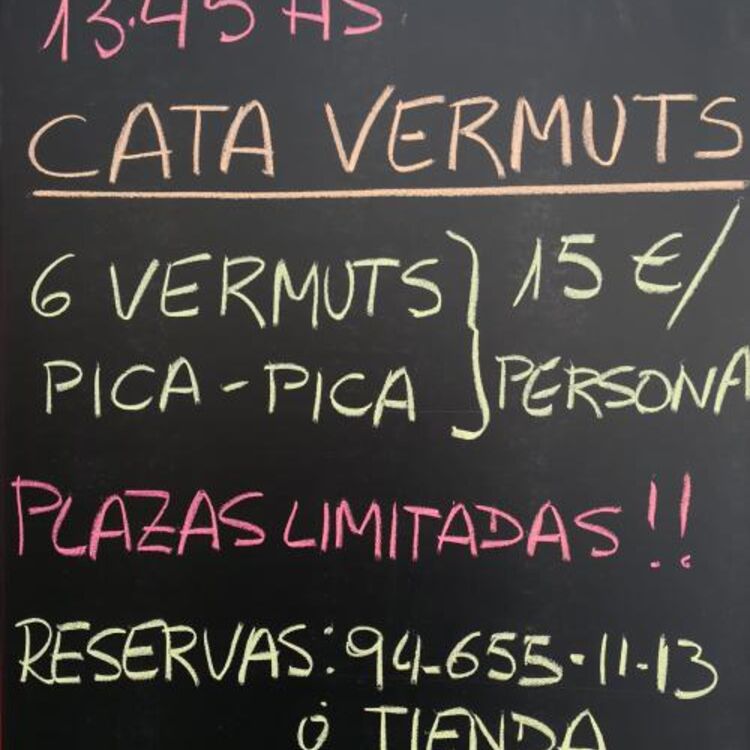 13.45 HS
CATA VERMUTS
6 VERMUTS } 15 €/
PICA-PICA } PERSONA
PLAZAS LIMITADAS!!
RESERVAS: 94-655-11-13
Ó TIENDA